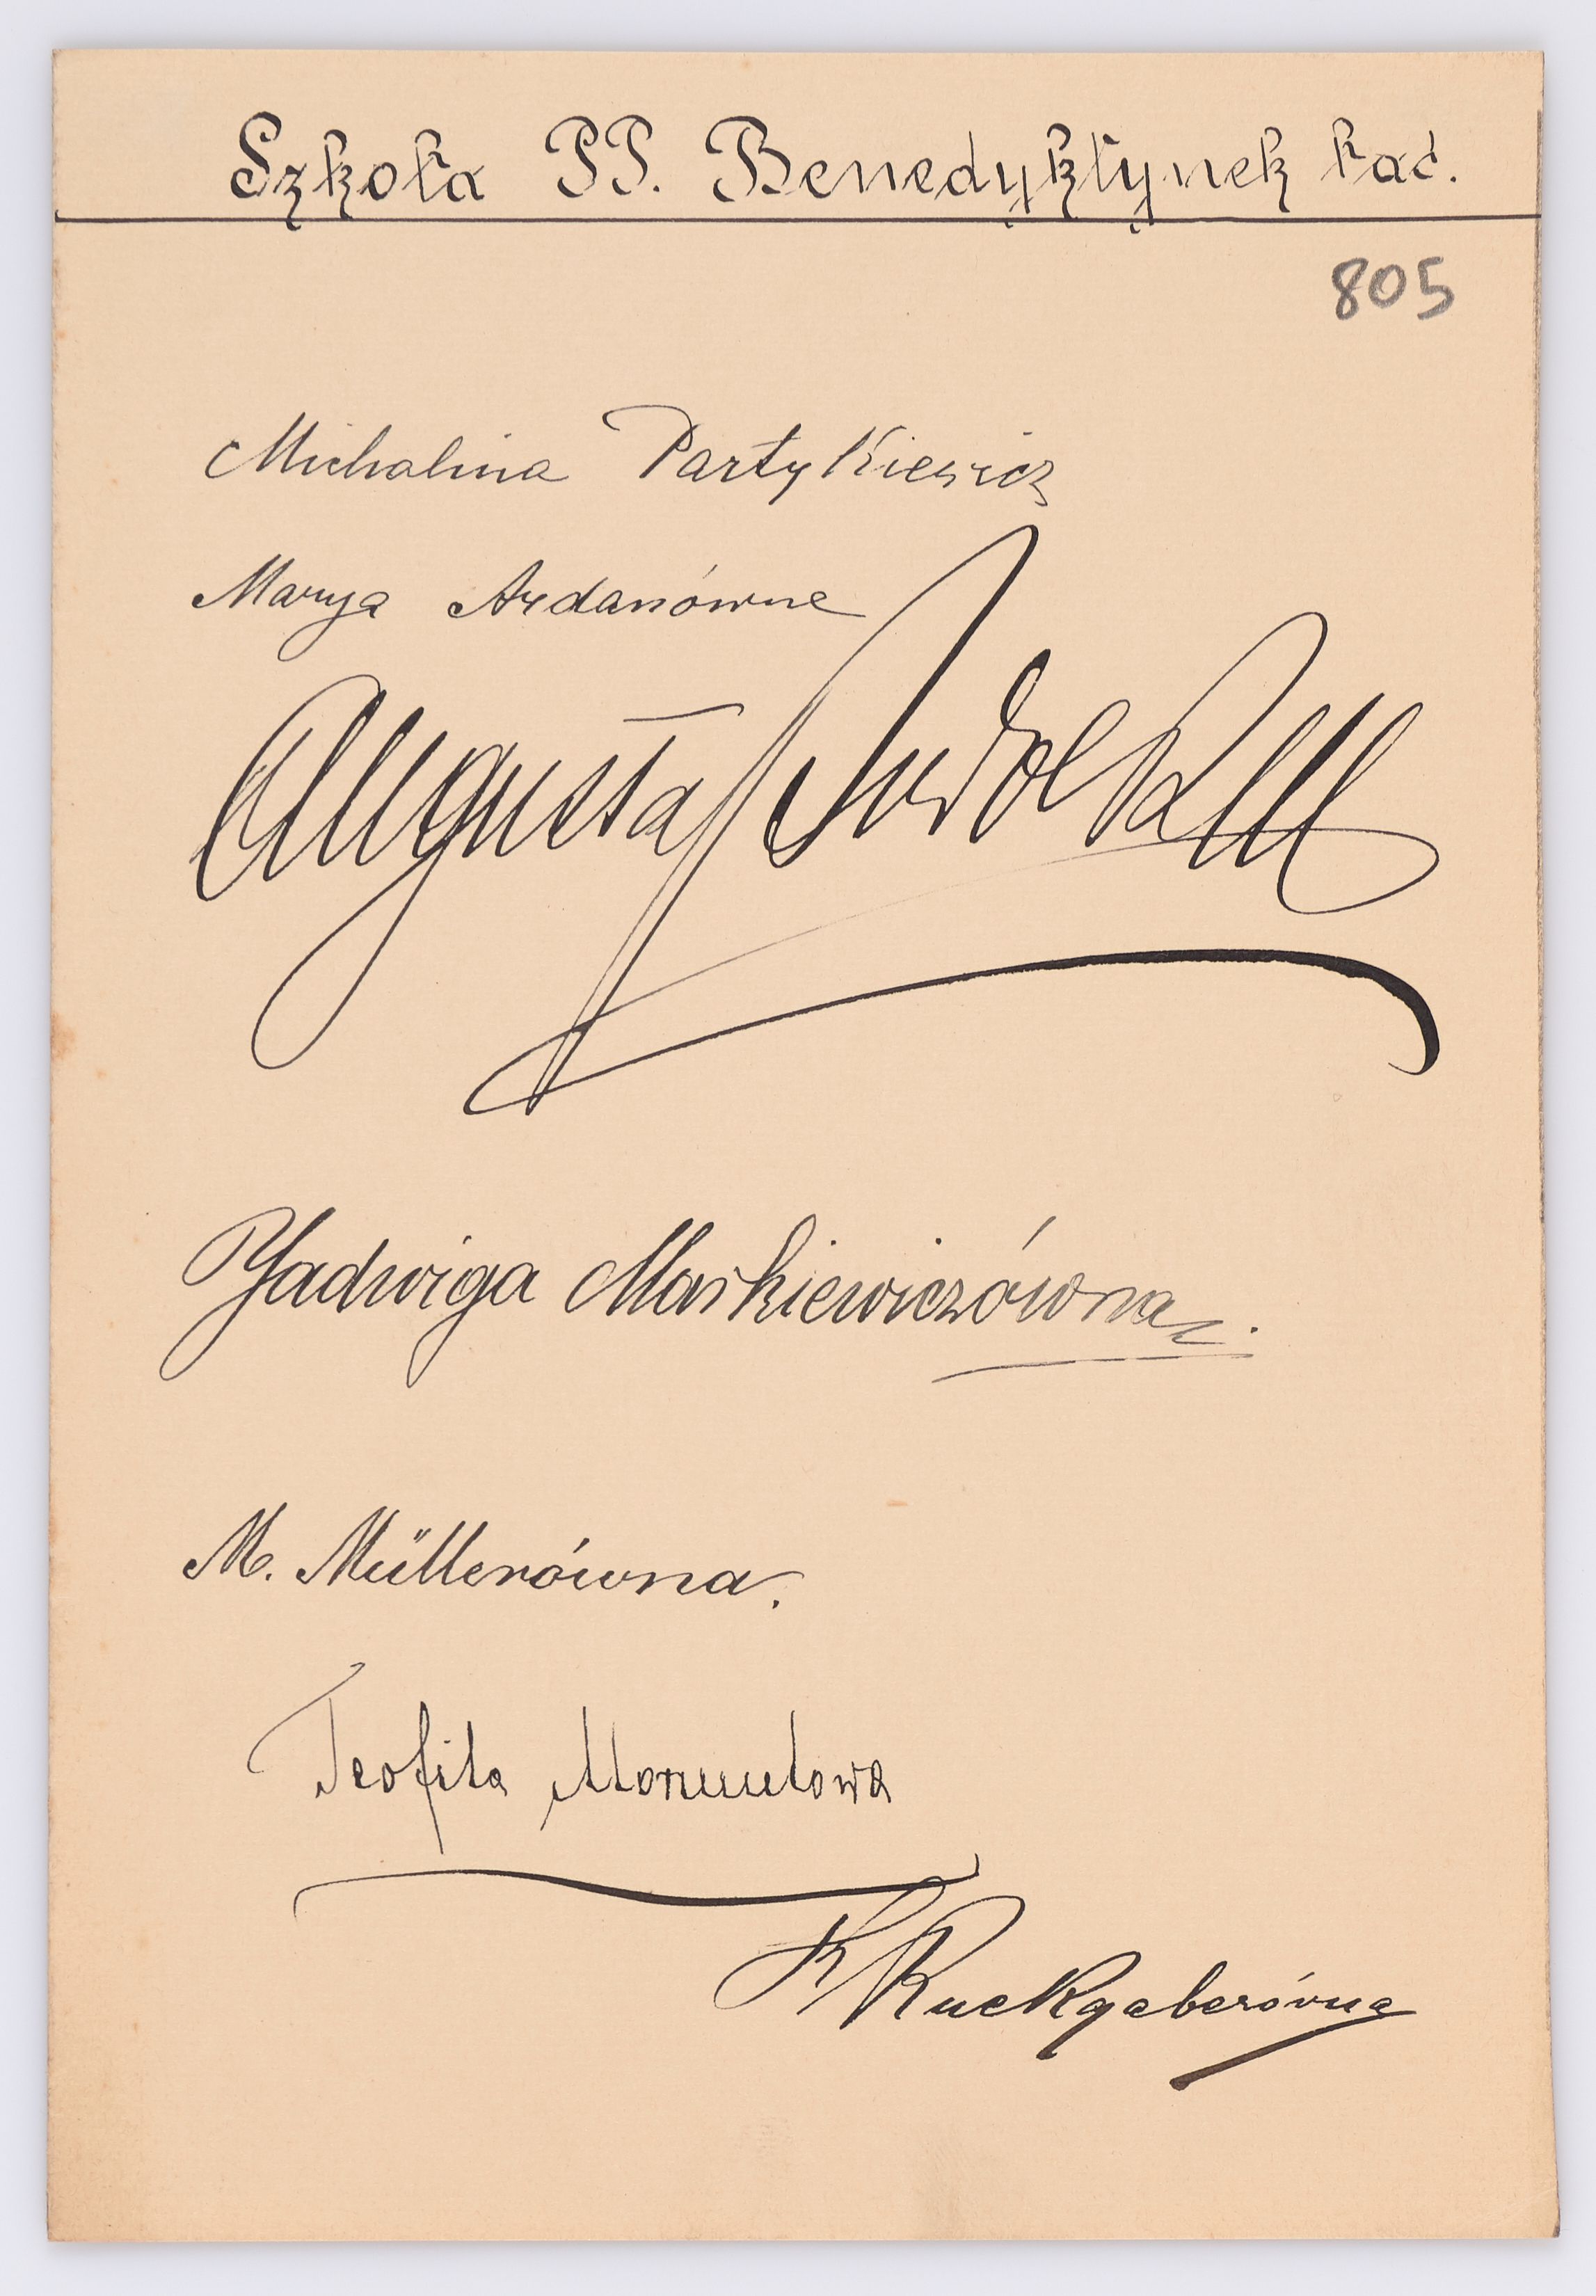 Szkoła PP. Benedyktynek łać.
805
Michalina Partykiewicz
Marya Ardanówna
Augusta
Jadwiga Maskiewiczówna.
M. Müllerówna.
Teofila
K Ruckgaberówna